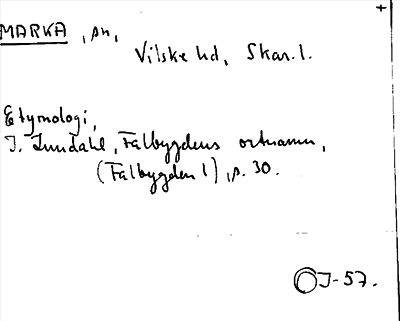 MARKA, sn,
Vilske hd, Skar. l.
Etymologi,
I. Lundahl, Falbygdens ortnamn,
(Falbygden 1), s. 30.
J-57.